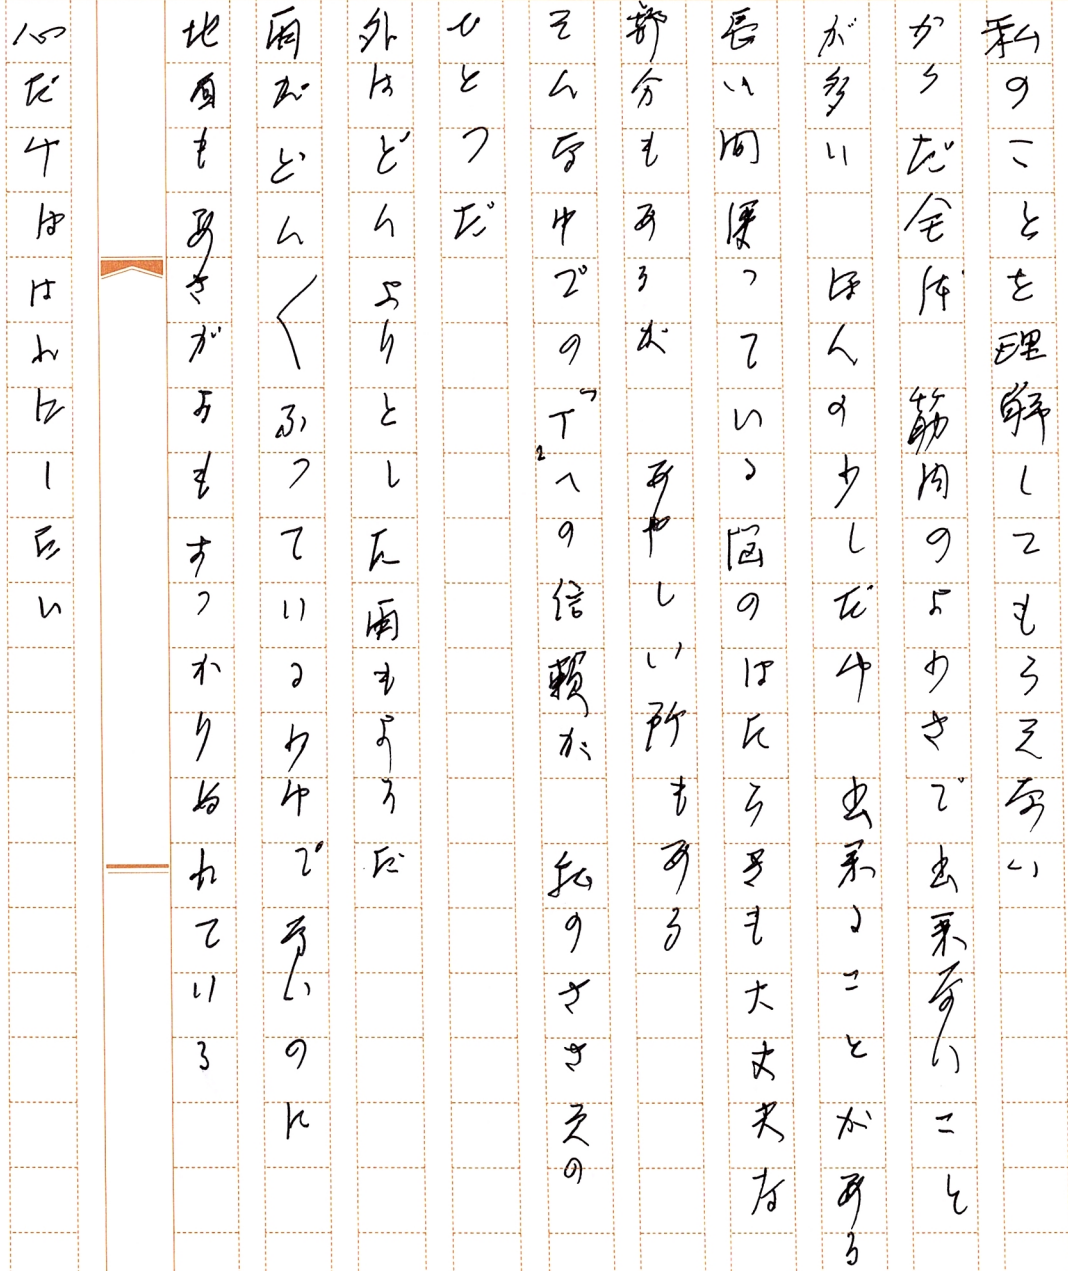 私のことを理解してもらえない
からだ全体 筋肉のよわさで出来ないこと
が多い ほんの少しだけ 出来ることがある
長い間使っている脳のはたらきも大丈夫な
部分もあるが あやしい所もある
そんな中での「T²への信頼が 私のささえの
ひとつだ
外はどんよりとした雨もようだ
雨がどん〱ふっているわけでないのに
地面もあさがおもすっかりぬれている
心だけははれにしたい